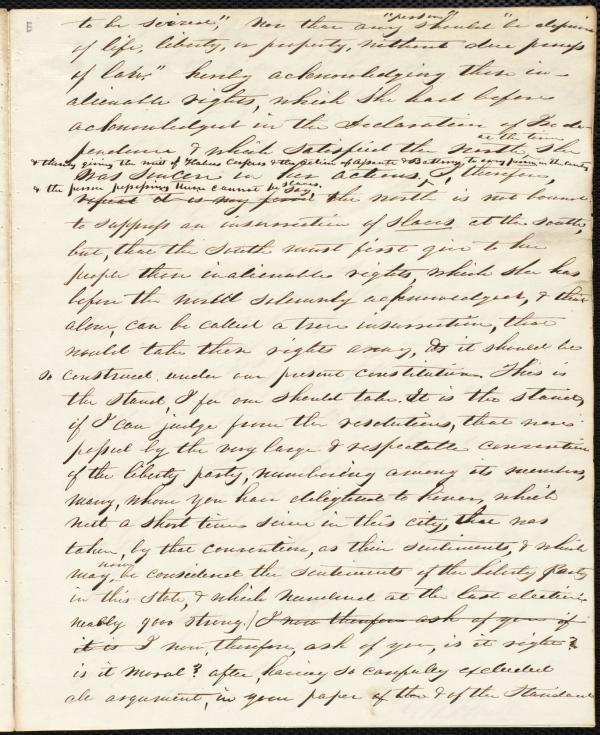 to be seized", Nor that any "person" should "be deprived
of life, liberty, or property, without due process
of law." hereby acknowledging those in-
alienable rights, which She had before
acknowledged in the Declaration of Inde-
pendence & which satisfied the North, She at the time
& thereby giving the writ of Habeas Corpus & the action of & Battery to any person in the
was sincere in her actions, I, therefore,
& the person possessing them cannot be slaves.
repeat it is my the north is not bound
to suppress an insurrection of slaves at the south,
but, that the South must first give to her
people those inalienable rights, which she has
before the world solemnly acknowledged, & that
alone, can be called a true insurrection, that
would take these rights away, As it should be
so construed under our present constitution. This is
the stand, I for one should take. It is the stand,
if I can judge from the resolutions, that were
passed by the very large & respectable convention
of the liberty party, numbering among its members,
many, whom you have delighted to honor, which
met a short time since in this city, that was
taken, by that convention, as their sentiments, & which
may, now be considered the sentiments of the liberty party
in this State, & which numbered at the last election
nearly 9000 strong. I now therefore ask of you if
it is I now, therefore, ask of you, is it right?
is it moral? after having so carefully excluded
all argument, in your paper of the & of the Standard